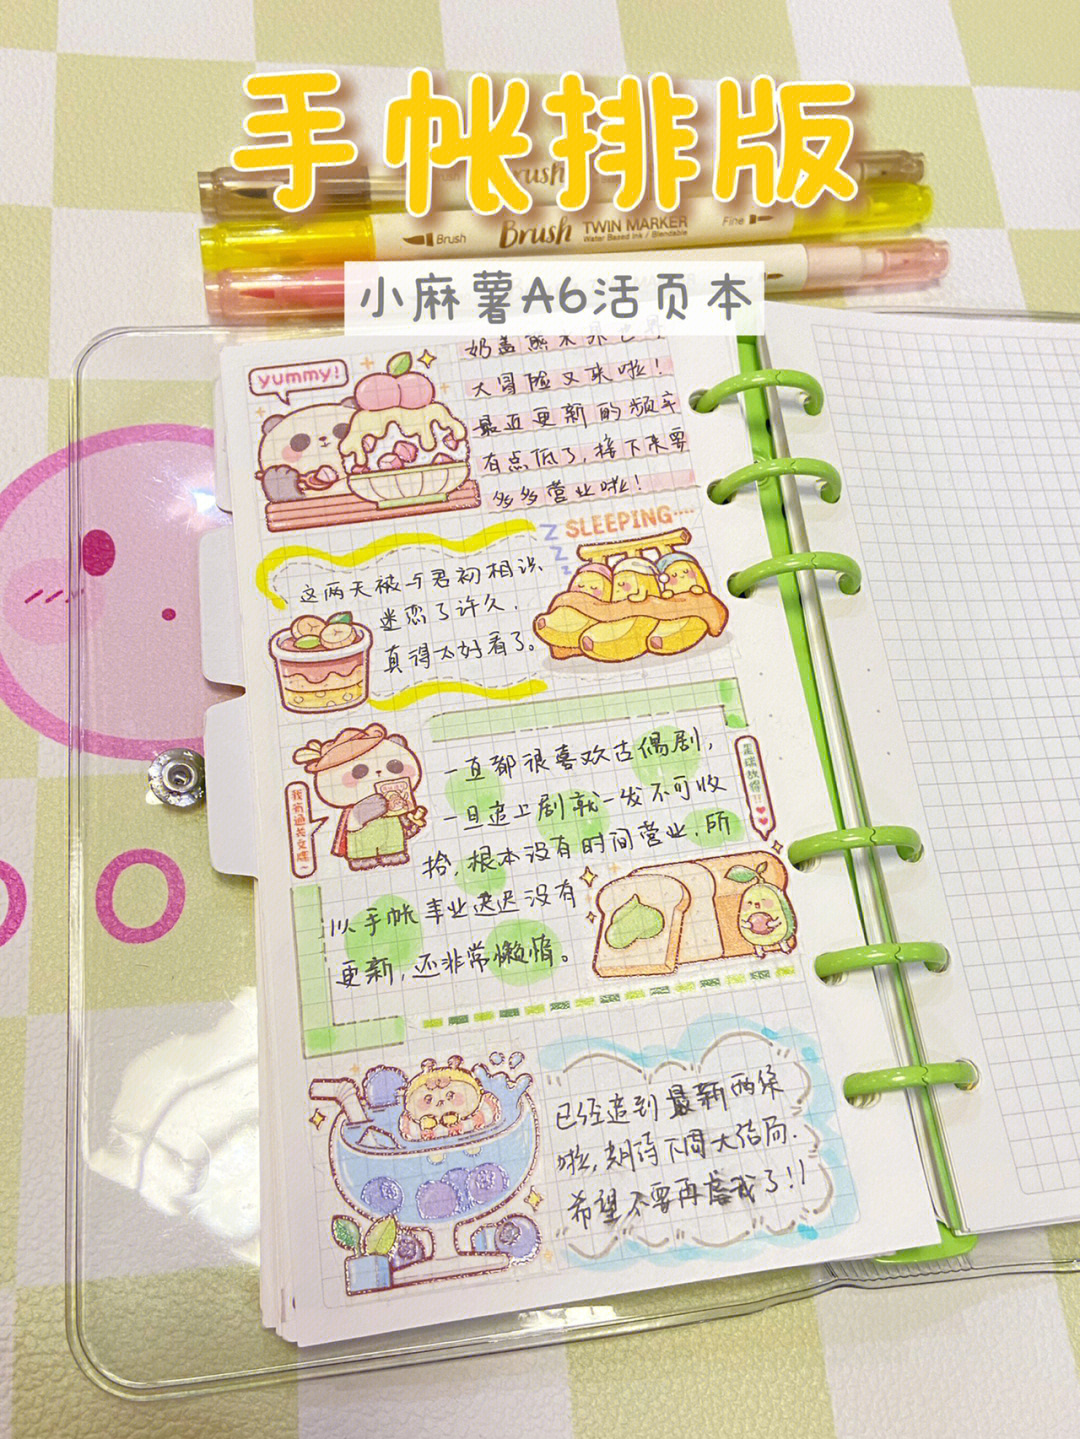 手帐排版
Brush
Brush
Brush
TWIN MARKER
Water Based Ink / Blendable
Fine
小麻薯A6活页本
大冒险又来啦！
最近更新的频率
有点低了，接下来要
多多营业啦！
yummy!
SLEEPING····
z
z
z
这两天被与君初相识
迷恋了许久，
真得太好看了。
一直都很喜欢古偶剧，
一旦追上剧就一发不可收
拾，根本没有时间营业，所
以手帐事业迟迟没有
更新，还非常懒惰。
我有通关文牒~
已经追到最新两条
啦，期待下周大结局.
希望不要再虐我了！！